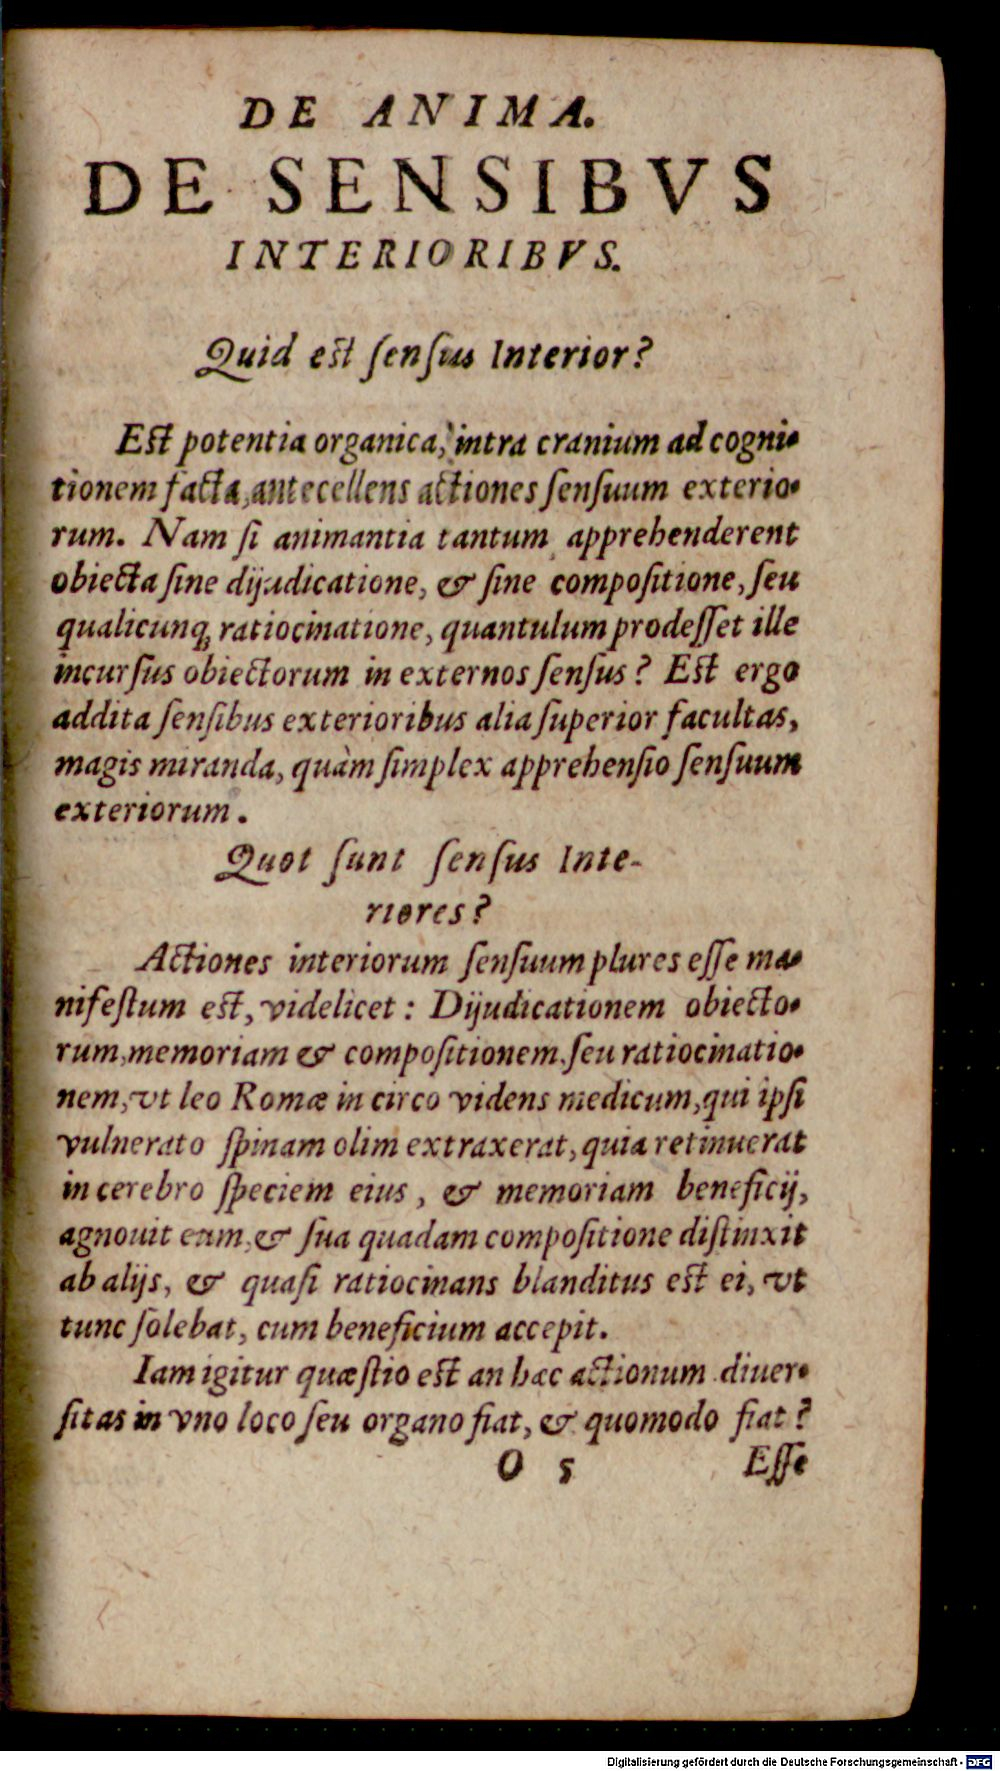 DE ANIMA.
DE SENSIBVS
INTERIORIBVS.
Quid est sensus Interior?
Est potentia organica, intra cranium ad cogni-
tionem facta, antecellens actiones sensuum exterio-
rum. Nam si animantia tantum apprehenderent
obiecta sine dijudicatione, & sine compositione, seu
qualicunq; ratiocinatione, quantulum prodesset ille
incursus obiectorum in externos sensus? Est ergo
addita sensibus exterioribus alia superior facultas,
magis miranda, quàm simplex apprehensio sensuum
exteriorum.
Quot sunt sensus Inte-
riores?
Actiones interiorum sensuum plures esse ma-
nifestum est, videlicet: Dijudicationem obiecto-
rum, memoriam & compositionem, seu ratiocinatio-
nem, vt leo Romæ in circo videns medicum, qui ipsi
vulnerato spinam olim extraxerat, quia retinuerat
in cerebro speciem eius, & memoriam beneficij,
agnouit eum, & sua quadam compositione distinxit
ab alijs, & quasi ratiocinans blanditus est ei, vt
tunc solebat, cum beneficium accepit.
Iam igitur quæstio est an hæc actionum diuer-
sitas in vno loco seu organo fiat, & quomodo fiat?
O 5 Esse
Digitalisierung gefördert durch die Deutsche Forschungsgemeinschaft - DFG